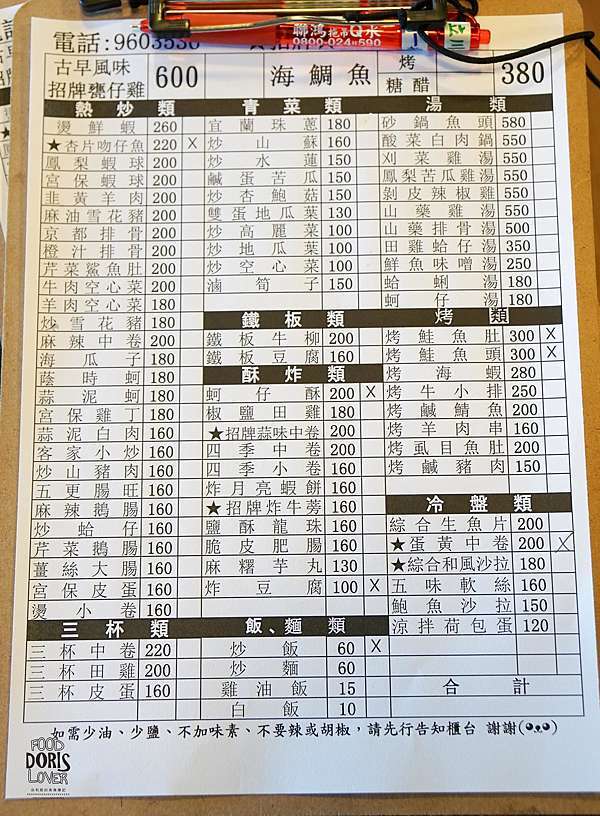 聯鴻拖吊Q米
0800-024-590
電話:9603530
★招牌
古早風味
招牌甕仔雞 600
海鯛魚 烤 糖醋 380
熱炒類
燙鮮蝦 260
★杏片吻仔魚 220 X
鳳梨蝦球 200
宮保蝦球 200
韭黃羊肉 200
麻油雪花豬 200
京都排骨 200
橙汁排骨 200
芹菜鯊魚肚 200
牛肉空心菜 200
羊肉空心菜 180
炒雪花豬 180
麻辣中卷 200
海瓜子 180
蔭時蚵 180
蒜泥蚵 180
宮保雞丁 180
蒜泥白肉 160
客家小炒 160
炒山豬肉 160
五更腸旺 160
麻辣鵝腸 160
炒蛤仔 160
芹菜鵝腸 160
薑絲大腸 160
宮保皮蛋 160
燙小卷 160
三杯類
三杯中卷 220
三杯田雞 200
三杯皮蛋 160
青菜類
宜蘭珠蔥 180
炒山蘇 160
炒水蓮 150
鹹蛋苦瓜 150
炒杏鮑菇 150
雙蛋地瓜葉 130
炒高麗菜 100
炒地瓜葉 100
炒空心菜 100
滷筍子 150
鐵板類
鐵板牛柳 200
鐵板豆腐 160
酥炸類
蚵仔酥 200 X
椒鹽田雞 180
★招牌蒜味中卷 200
四季中卷 200
四季小卷 160
炸月亮蝦餅 160
★招牌炸牛蒡 160
鹽酥龍珠 160
脆皮肥腸 160
麻糬芋丸 130
炸豆腐 100 X
飯、麵類
炒飯 60 X
炒麵 60
雞油飯 15
白飯 10
湯類
砂鍋魚頭 580
酸菜白肉鍋 550
刈菜雞湯 550
鳳梨苦瓜雞湯 550
剝皮辣椒雞 550
山藥雞湯 550
山藥排骨湯 500
田雞蛤仔湯 350
鮮魚味噌湯 250
蛤蜊湯 180
蚵仔湯 180
烤類
烤鮭魚肚 300 X
烤鮭魚頭 300 X
烤海蝦 280
烤牛小排 250
烤鹹鯖魚 200
烤羊肉串 160
烤虱目魚肚 200
烤鹹豬肉 150
冷盤類
綜合生魚片 200
★蛋黃中卷 200 X
★綜合和風沙拉 180
五味軟絲 160
鮑魚沙拉 150
涼拌荷包蛋 120
合計
如需少油、少鹽、不加味素、不要辣或胡椒，請先行告知櫃台 謝謝
FOOD
DORIS
LOVER